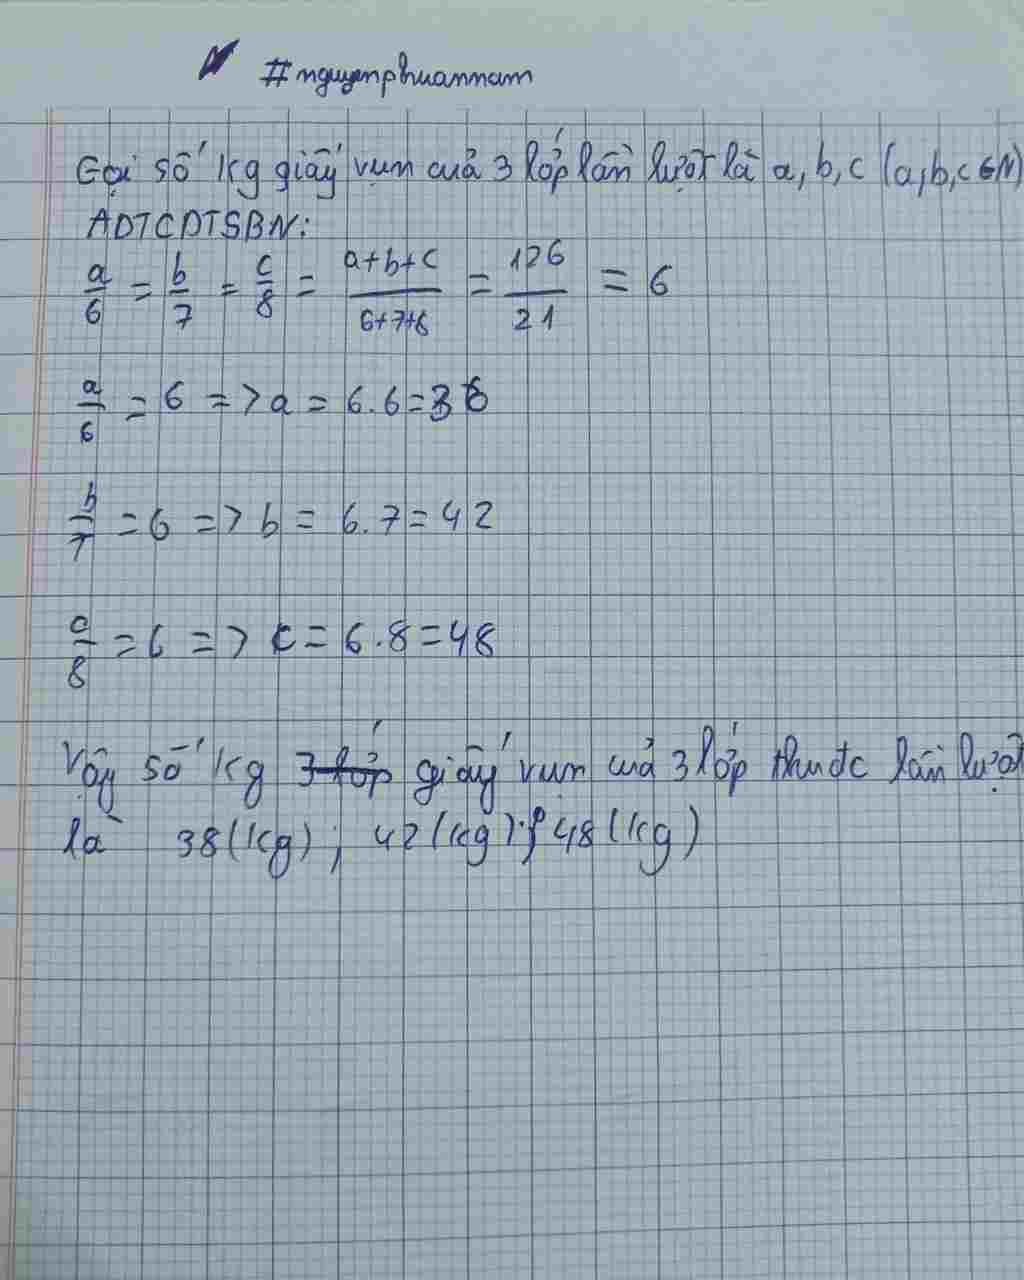 #nguyenphuannam
Gọi số kg giấy vụn của 3 lớp lần lượt là a, b, c (a,b,c ∈ N)
ADTCDTSBN:
a/6 = b/7 = c/8 = a+b+c/6+7+8 = 126/21 = 6
a/6 = 6 => a = 6.6 = 36
b/7 = 6 => b = 6.7 = 42
c/8 = 6 => c = 6.8 = 48
Vậy số kg 3 lớp giấy vụn của 3 lớp thuđc lần lượt
là 38 (kg); 42 (kg); 48 (kg)